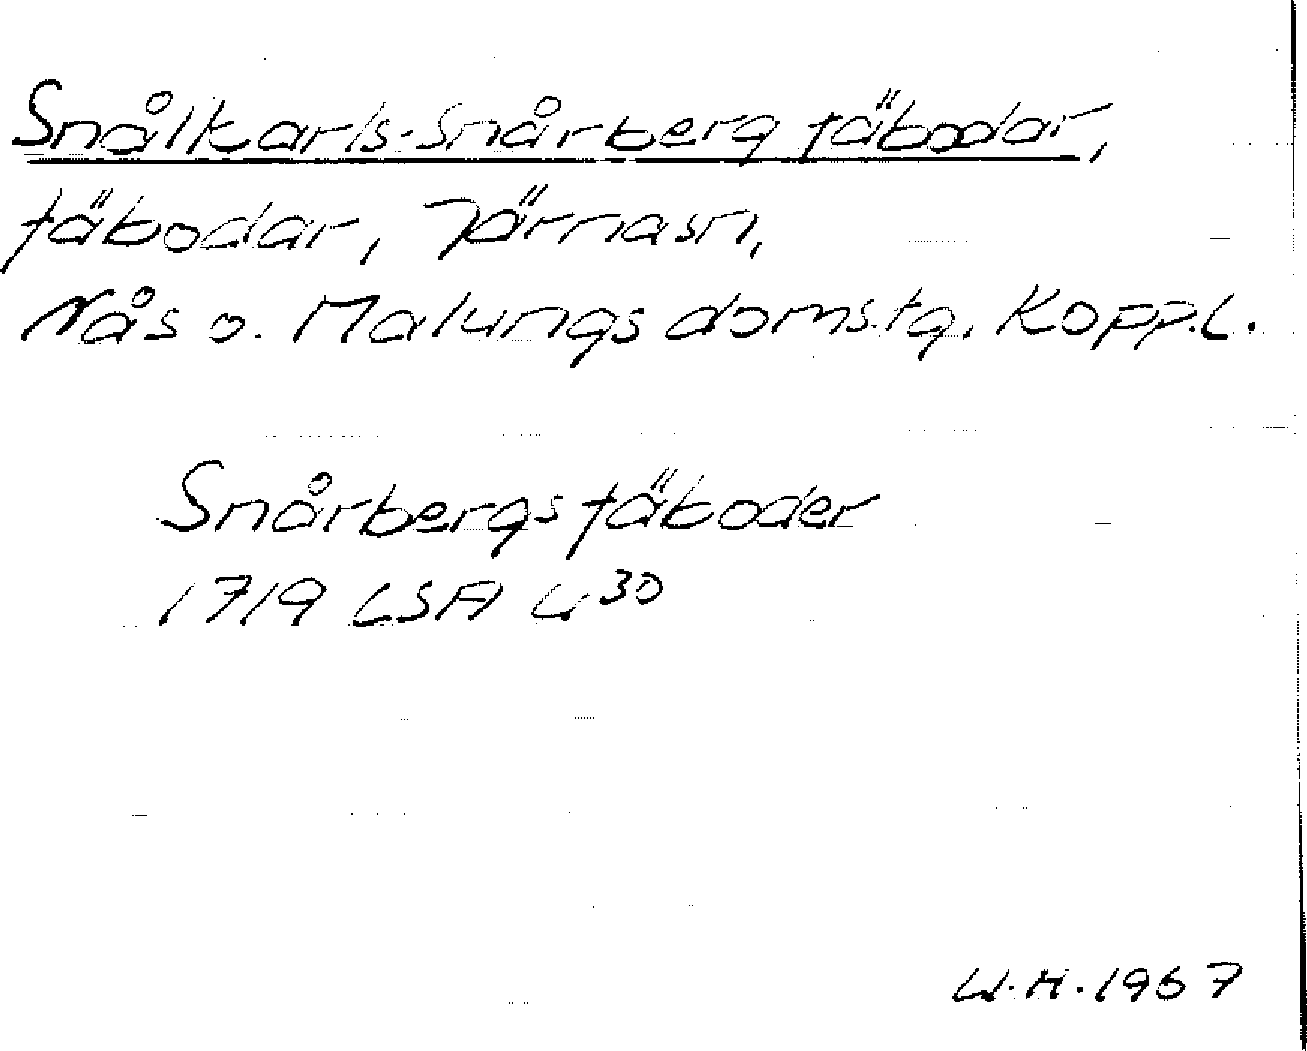 Snålkarls-Snårberg fäbodar,
fäbodar, Järnasn,
Nås o. Malungs domstg. Kopp.l.
Snårbergs fäboder
1719 LSA U 30
W.H. 1967